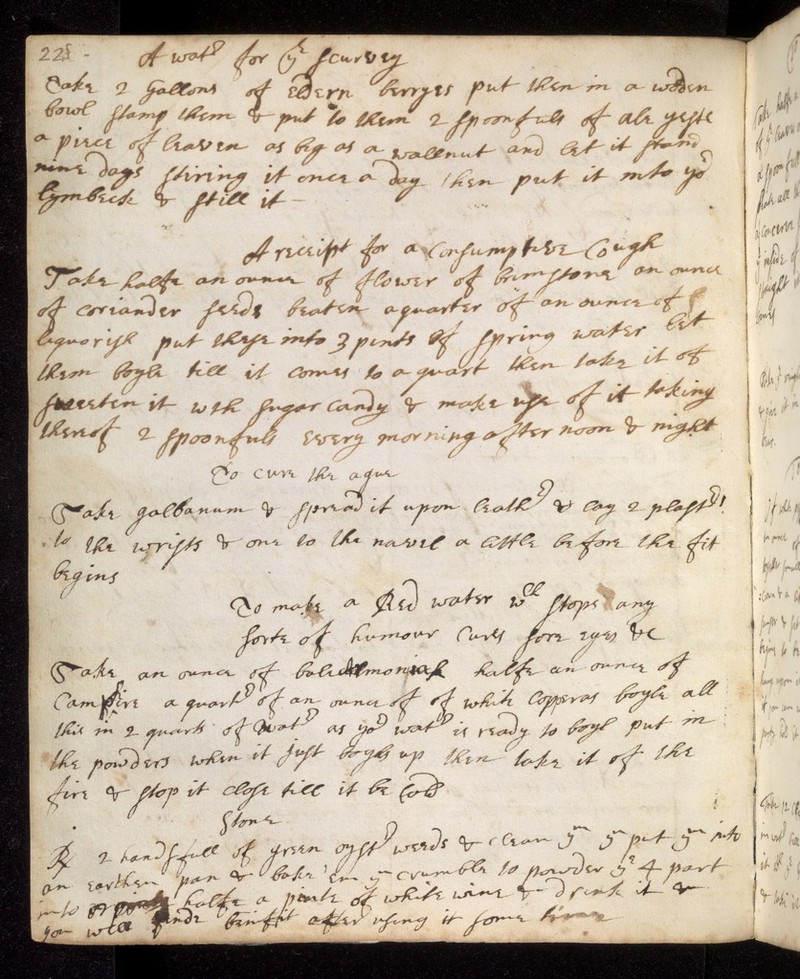 225 -
A watr for ye scurvey
Take 2 Gallons of Eldern berryes put them in a woden
bowl stamp them & put to them 2 spoonfuls of ale yeste
a piece of leaven as big as a wallnut and let it stand
nine days stiring it once a day then put it into yor
lymbeck & still it -
A receipt for a Consumptive Cough
Take halfe an ounce of flower of brimstone an ounce
of coriander seeds beaten a quarter of an ounce of
liquorish put these into 3 pints of spring water let
them boyle till it comes to a quart then take it of
sweeten it wth sugar candy & make use of it taking
thereof 2 spoonfuls every morning after noon & night
To cure the ague
Take galbanum & spread it upon leathr & lay 2 plastrs
to the wrists & one to the navel a little before the fit
begins
To make a Red water wch stops any
sorte of humour Cures sore eyes &c
Take an ounce of bole halfe an ounce of
Camfire a quartr of an ounce of of white Copperas boyle all
this in 2 quarts of watr as yor watr is ready to boyl put in
the powders when it just boyls up then take it of the
fire & stop it close till it be Cold
Stone
Rx 2 handsfull of green oystr weeds & clean ym yn put ym into
an earthen pan & bake 'em yn crumble to powder ye 4 part
into halfe a pinte of white wine & drink it &
you will finde benifit after using it some